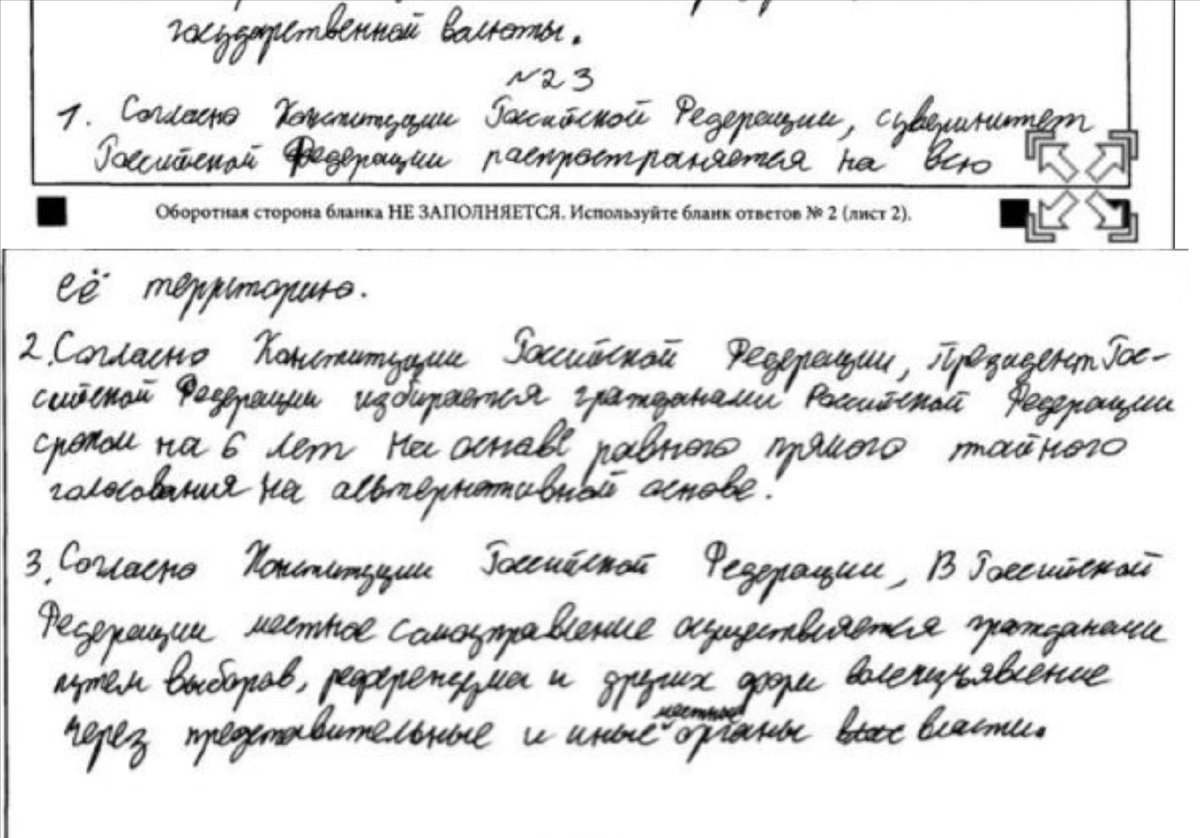 государственной валюты.
№23
1. Согласно Конституции Российской Федерации, суверинитет
Российской Федерации распространяется на всю
Оборотная сторона бланка НЕ ЗАПОЛНЯЕТСЯ. Используйте бланк ответов № 2 (лист 2).
её территорию.
2. Согласно Конституции Российской Федерации, Президент Рос-
сийской Федерации избирается гражданами Российской Федерации
сроком на 6 лет на основе равного прямого тайного
голосования на альтернативной основе.
3. Согласно Конституции Российской Федерации, в Российской
Федерации местное самоуправление осуществляется гражданами
путем выборов, референдума и других форм волеизъявление
местные
через представительные и иные органы власти.